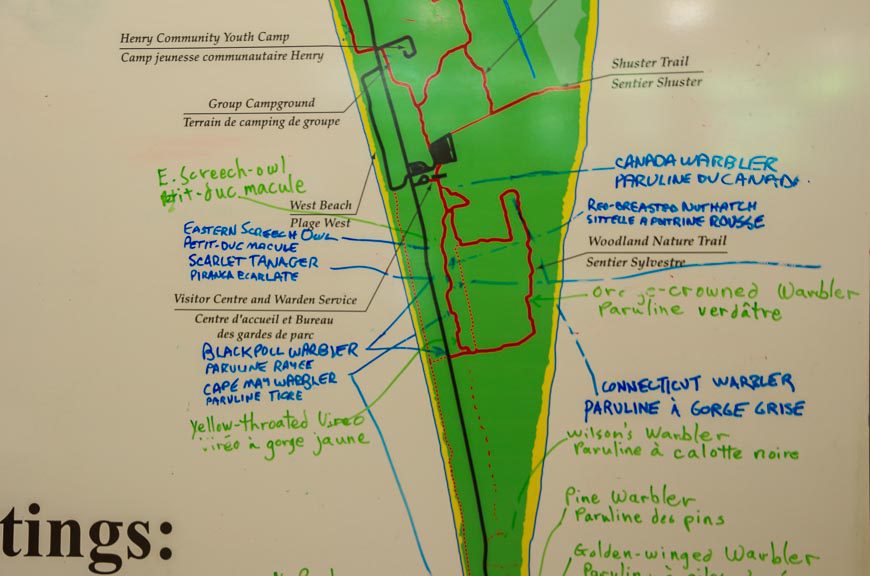 Henry Community Youth Camp
Camp jeunesse communautaire Henry
Shuster Trail
Sentier Shuster
Group Campground
Terrain de camping de groupe
E. Screech-owl
Petit-duc macule
CANADA WARBLER
PARULINE DU CANADA
West Beach
Plage West
RED-BREASTED NUTHATCH
SITTELLE A POITRINE ROUSSE
EASTERN SCREECH OWL
PETIT-DUC MACULE
SCARLET TANAGER
PIRANGA ECARLATE
Woodland Nature Trail
Sentier Sylvestre
Visitor Centre and Warden Service
Centre d'accueil et Bureau
des gardes de parc
-crowned Warbler
Paruline verdâtre
BLACKPOLL WARBLER
PARULINE RAYEE
CAPE MAY WARBLER
PARULINE TIGRE
CONNECTICUT WARBLER
PARULINE À GORGE GRISE
Yellow-throated Vireo
viréo à gorge jaune
Wilson's Warbler
Paruline à calotte noire
Pine Warbler
Paruline des pins
tings:
Golden-winged Warbler
Paruline à